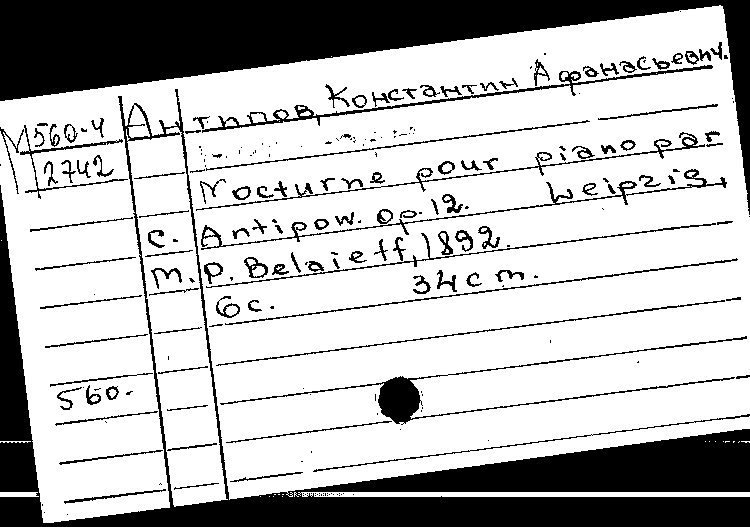 М560-4
2742
Антипов, Константин Афанасьевич.
Nocturne pour piano par
C. Antipow. op. 12. Leipzig,
M. P. Belaieff, 1892.
6 с. 34 cm.
560.